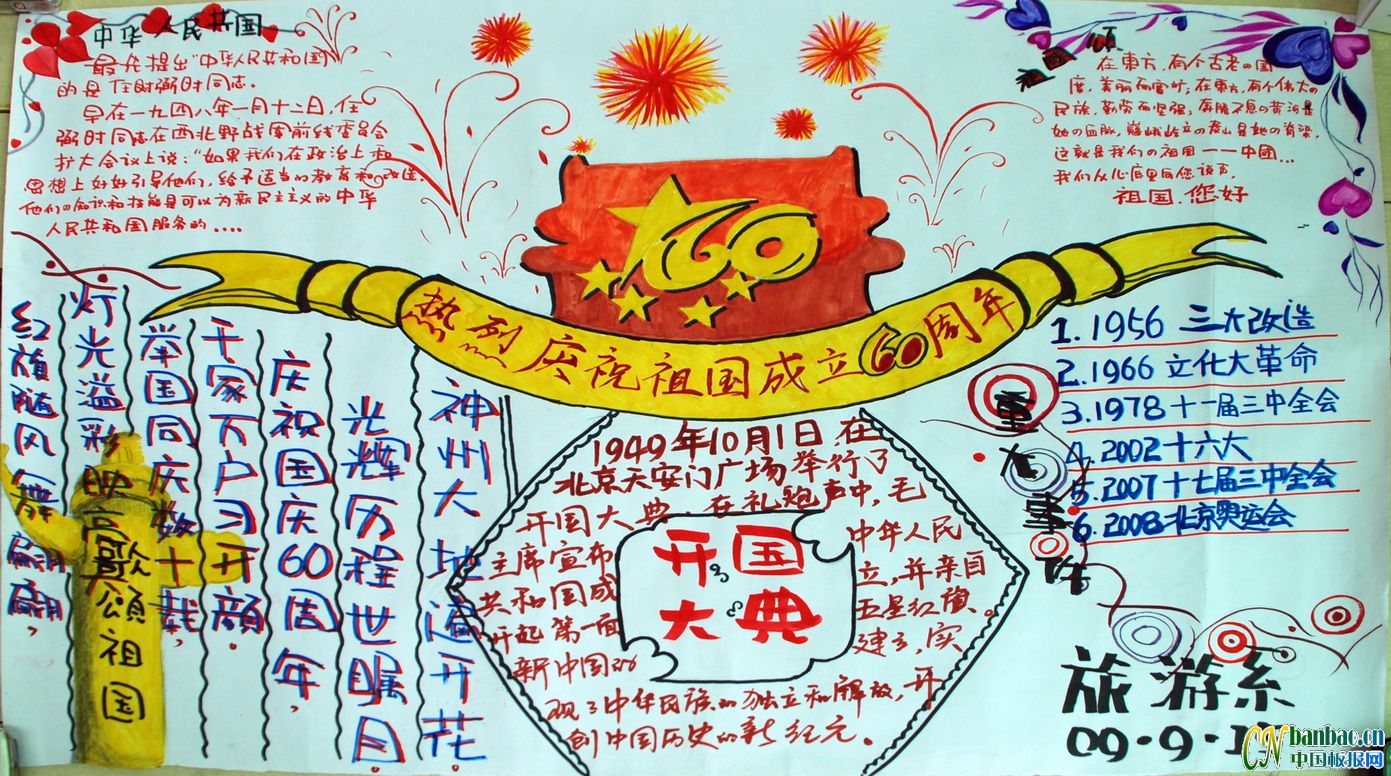 中华人民共和国
最先提出"中华人民共和国"
的是任时弼时同志.
早在一九四八年一月十二日,任
弼时同志在西北野战军前线委员会
扩大会议上说:"如果我们在政治上和
思想上好好引导他们,给予适当的教育和改造,
他们的知识和技能是可以为新民主主义的中华
人民共和国服务的....
祖国颂
在東方,有个古老の国
度,美丽而富饶;在東方,有个伟大の
民族,勤劳而坚强;奔腾不息の黄河是
她の血脉,巍峨屹立の泰山是她の脊梁,
这就是我们の祖国——中國...
我们从心底里向您说声,
祖国.您好
60
热列庆祝祖国成立60周年
神州大地遍开花
光辉历程世瞩目
庆祝国庆60周年,
千家万户习开颜
举国同庆数十载,
灯光溢彩映高歌颂祖国
红旗随风舞翩翩,
1949年10月1日,在
北京天安门广场举行了
开国大典.在礼炮声中,毛
主席宣布中华人民
共和国成立,并亲自
升起第一面五星红旗。
新中国的建立,实
现了中华民族的独立和解放,开
创中国历史的新纪元。
开国
大典
重大事件
1.1956 三大改造
2.1966 文化大革命
3.1978 十一届三中全会
4.2002 十六大
5.2007 十七届三中全会
6.2008 北京奥运会
旅游系
09.9.
CN banbao.cn
中国板报网